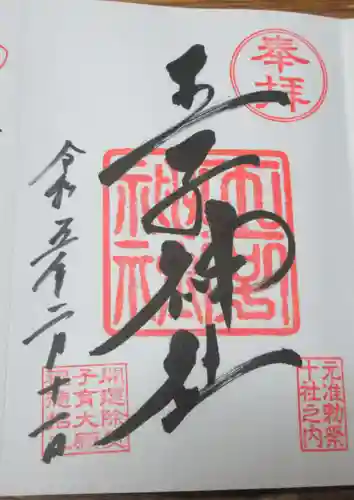 奉拝
王子神社
王子神社
元准勅祭
十社之内
開運除災
子育大願
令和五年二月十一日